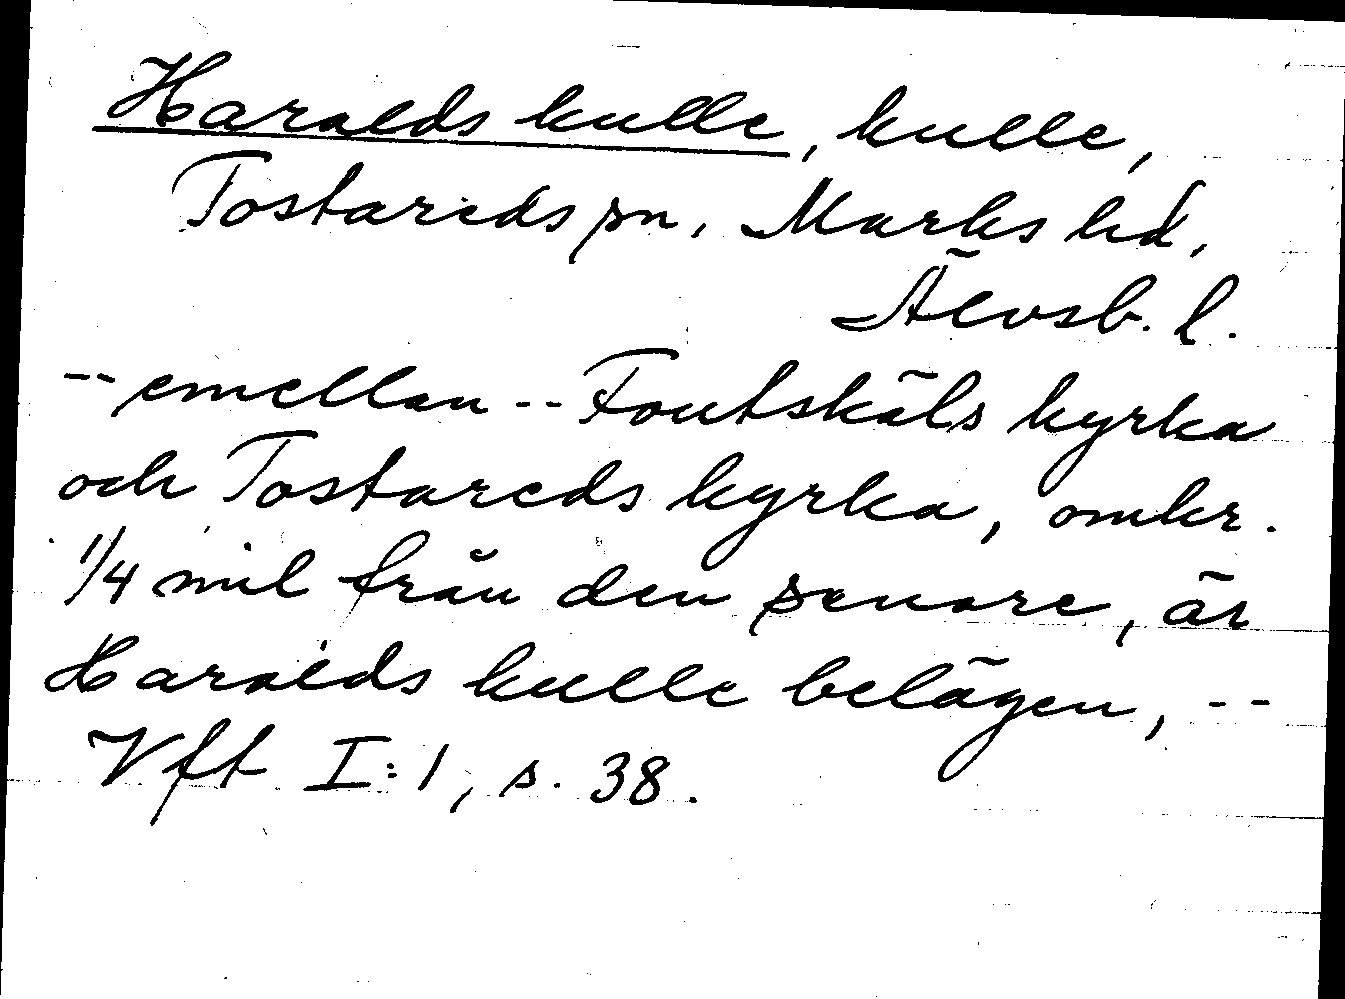 Haralds kulle, kulle,
Tostareds sn, Marks hd,
Älvsb. l.
-- emellan -- Foutskäls kyrka
och Tostareds kyrka, omkr.
1/4 mil från den senare, är
Haralds kulle belägen, --
Vft I:1, s. 38.